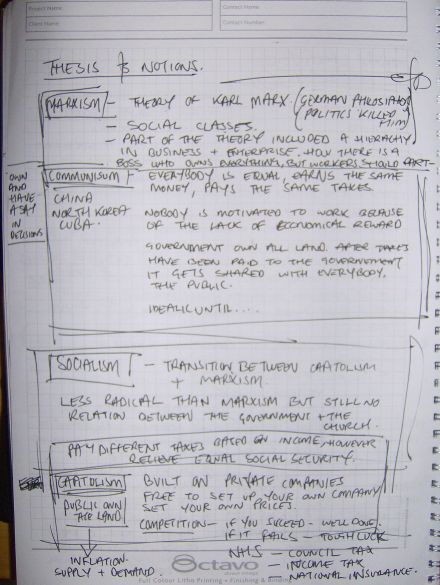 Project Name
Contact Name
Client Name
Contact Number
THESIS & NOTIONS.
MARXISM - THEORY OF KARL MARX. (GERMAN PHILOSIAPHOR
POLITICS KILLED HIM)
- SOCIAL CLASSES.
- PART OF THE THEORY INCLUDED A HIERACHY
IN BUSINESS + ENTERPRISE, HOW THERE IS A
BOSS WHO OWNS EVERYTHING, BUT WORKERS SHOULD PART-
OWN
AND
HAVE
A SAY
IN
DECISIONS
COMMUNISUM - EVERYBODY IS EQUAL, EARNS THE SAME
MONEY, PAYS THE SAME TAXES.
CHINA
NORTH KOREA
CUBA
NOBODY IS MOTIVATED TO WORK BECAUSE
OF THE LACK OF ECONOMICAL REWARD
GOVERNMENT OWN ALL LAND. AFTER TAXES
HAVE BEEN PAID TO THE GOVERNEMENT
IT GETS SHARED WITH EVERYBODY.
THE PUBLIC.
IDEALIC UNTIL....
SOCIALISM - TRANSITION BETWEEN CAPATOLISM
+ MARXISM.
LESS RADICAL THAN MARXISM BUT STILL NO
RELATION BETWEEN THE GOVERNMENT + THE
CHURCH.
PAY DIFFERENT TAXES BASED ON INCOME, HOWEVER
RELIEVE EQUAL SOCIAL SECURITY.
CAPATOLISM BUILT ON PRIVATE COMPANIES
FREE TO SET UP YOUR OWN COMPANY
SET YOUR OWN PRICES.
PUBLIC OWN
THE LAND
COMPETITION - IF YOU SUCEED - WELL DONE.
IF IT FAILS - TOUGH LUCK
INFLATION
SUPPLY + DEMAND.
NHS - COUNCIL TAX
- INCOME TAX
NATIONAL INSURANCE.
Octavo
Full Colour Litho Printing • Finishing & Binding